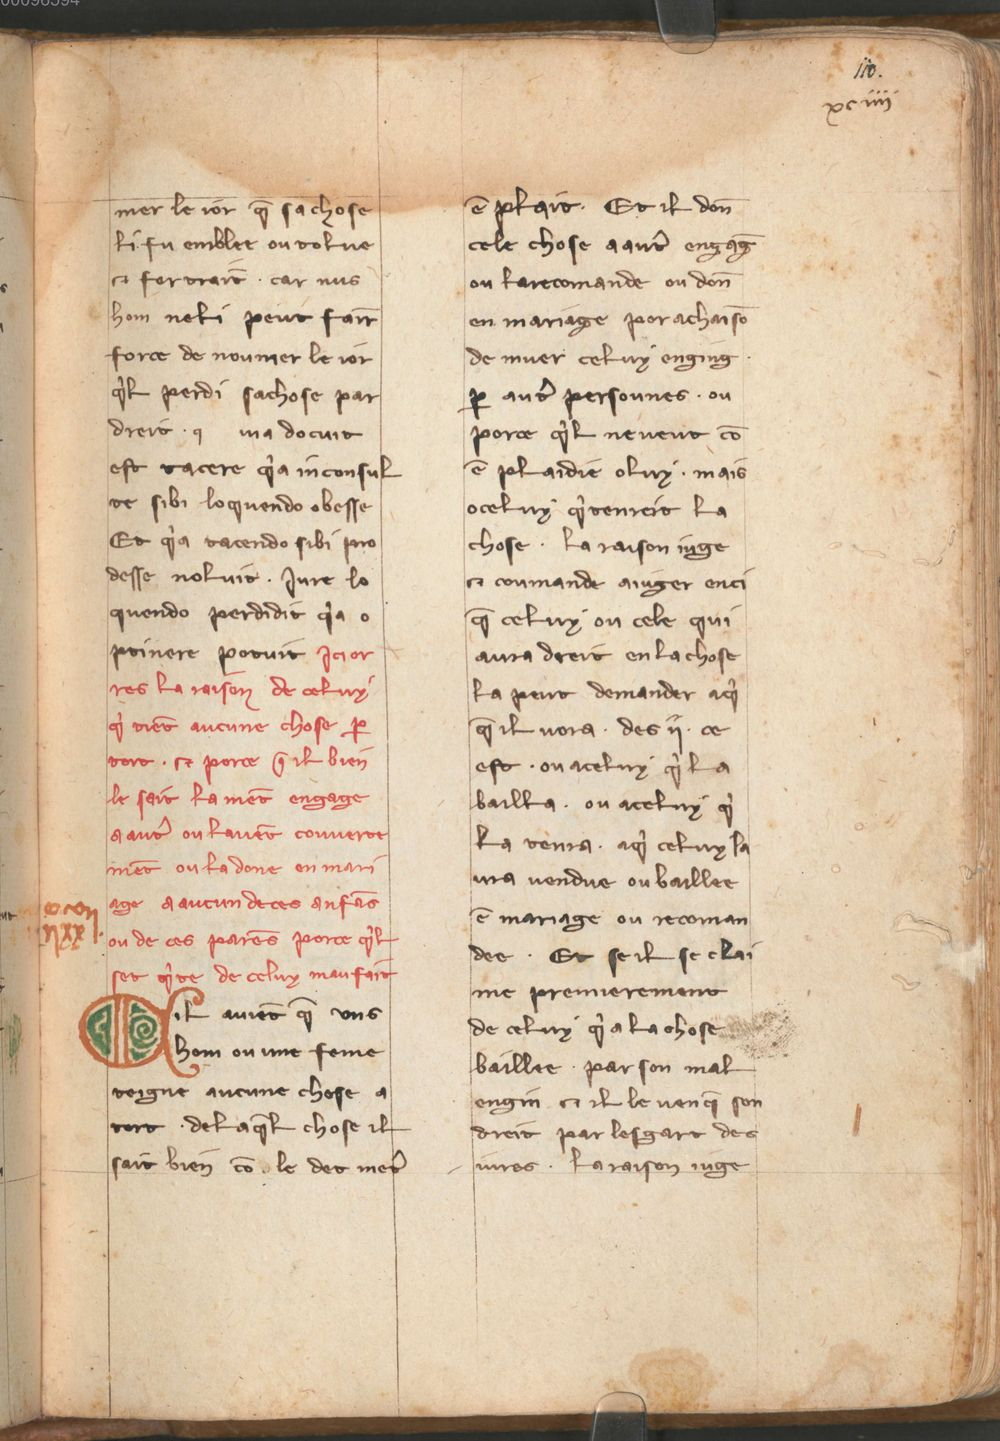 110.
xciiii
mer le ior q̄ sa chose
ki fu emblee ou tolue
⁊ fortrait̄ . car nus
hom neki peut fair̄
force de noumer le ior
q̓l perdi sachose par
dreit . q ma docuit
est tacere q̓a inconsul
te sibi loquendo obesse
Et q̓a tacendo sibi pro
desse noluit . Jure lo
quendo perdidit q̓a o
ptinere potuit Jci or
res la raison de celuy
q̓ tiēt aucune chose ꝑ
tort . ⁊ porce q̄ il bien
le sait la mēt engage
a aut̓ ou lauēt couuerte
mēt ou la done en mari
age a aucun deces anfās
ou de ces parēs porce q̓l
set q̓te de celuy maufait
Sil auiēt q̄ vns
hom ou une feme
teigne aucune chose a
tort . de laq̄l chose il
sait bien cō le det met̓
ē plait . Et il don̄
cele chose a aut̓ engaḡ
ou la recomande ou don̄
en mariage por achaisō
de muer celuy enging .
ꝑ aut̓ persounes . ou
porce q̓l neveut cō
ē plaidie oluy . mais
oceluy q̓ tenreit la
chose . la raison iuge
⁊ coumande a iuger enci
q̄ celuy ou cele qui
aura dreit en la chose
la peut demander aq̓
q̄ il uora . des ii . ce
est . ou a celuy q̓ la
bailla . ou a celuy q̓
la tenra . aq̓ celuy la
ura uendue ou baillee
ē mariage ou recoman
dee . Et se il se clai
me premierement
de celuy q̓ a la chose
baillee . par son mal
engin ⁊ il le uenq̄ son
dreit par lesgart des
iures . la raison iuge